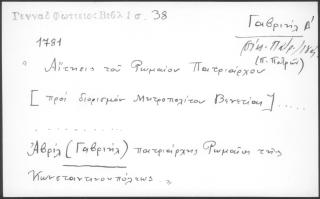 Γενναδ Φωτιειος Βιβλ 1 σ. 38
Γαβριήλ Δ'
1781
(π. Πατρῶν)
" Αἴτησις τοῦ Ρωμαίου Πατριάρχου
[ πρὸς διορισμὸν Μητροπολίτου Βενετίας ] .....
. . . . . . . .
Ἀβρὶλ (Γαβριὴλ) πατριάρχης Ρωμαίων τῆς
Κωνσταντινουπόλεως .. "